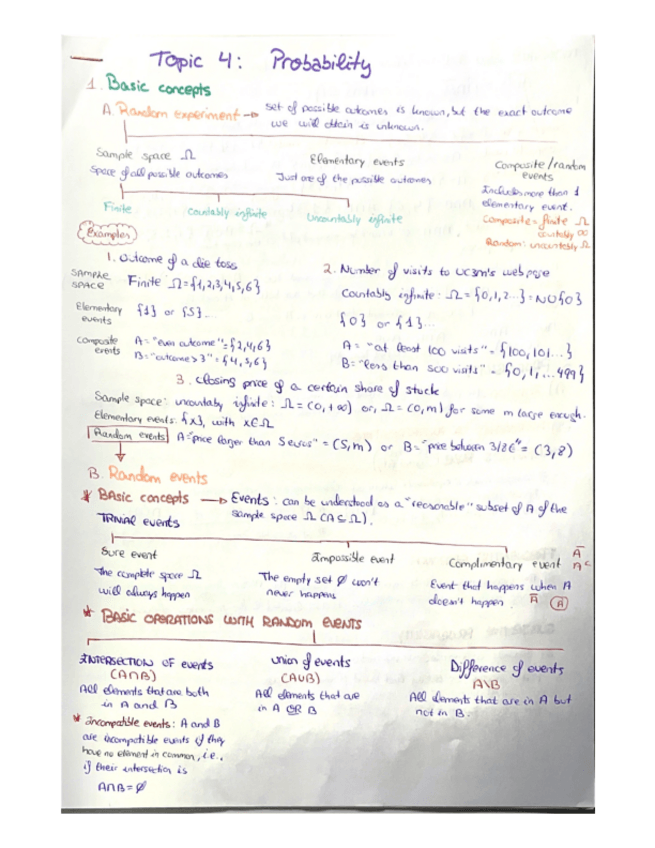 Topic 4: Probability
1. Basic concepts
A. Random experiment → set of possible outcomes is known, but the exact outcome
we will obtain is unknown.
Sample space Ω
Space of all possible outcomes
Elementary events
Just one of the possible outcomes
Composite/random
events
Includes more than 1
elementary event.
Composite = finite Ω
countably ∞
Random: uncountably Ω
Finite
Countably infinite
Uncountably infinite
Examples
1. Outcome of a die toss
SAMPLE
SPACE
Finite Ω={1,2,3,4,5,6}
Elementary
events
{1} or {5}...
Composite
events
A= "even outcome"={2,4,6}
B="outcome>3"={4,5,6}
2. Number of visits to UC3M's web page
Countably infinite: Ω={0,1,2...}=NU{0}
{0} or {1}...
A= "at least 100 visits"={100,101...}
B= "less than 500 visits"={0,1,...499}
3. Closing price of a certain share of stock
Sample space: uncountably infinite: Ω=(0,+∞) or, Ω=(0,m) for some m large enough.
Elementary events: {x}, with x∈Ω
Random events A="price larger than 5 euros"=(5,m) or B="price between 3/8€"=(3,8)
B. Random events
* BASIC concepts → Events: can be understood as a "reasonable" subset of A of the
sample space Ω (A⊆Ω).
TRIVIAL events
Sure event
The complete space Ω
will always happen
Impossible event
The empty set ∅ won't
never happens
Complimentary event
Ā
Aᶜ
Event that happens when A
doesn't happen. Ā
A
* BASIC OPERATIONS WITH RANDOM EVENTS
INTERSECTION OF events
(A∩B)
All elements that are both
in A and B
Union of events
(A∪B)
All elements that are
in A OR B
Difference of events
A\B
All elements that are in A but
not in B.
* Incompatible events: A and B
are incompatible events if they
have no element in common, i.e.,
if their intersection is
A∩B=∅